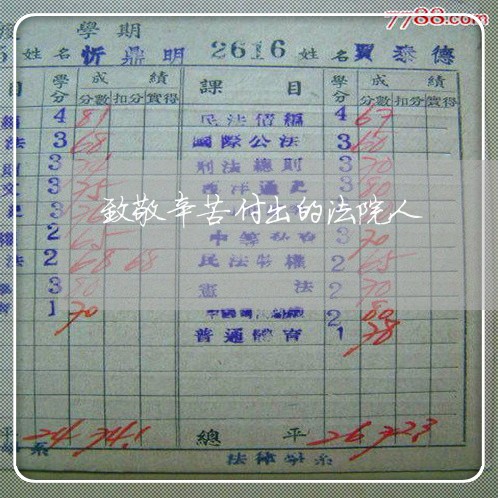 7788.com
學期
姓名 忻鼎明 2616 姓名 賈泰德
目 學分 成績 課目 學分 成績
分數 扣分 實得 分數 扣分 實得
4 81 民法債編 4 67
法 3 68 國際公法 3 60
3 刑法總則 3 70
3 75 西洋通史 3 80
致敬辛苦付出的法院人
2 65 3 70
法 2 68 68 民法物權 2 65
3 80 憲法 2 70
1 70 2 80
普通體育 1 78
平 24 74.1 總平 26 72.3
系 法律學系